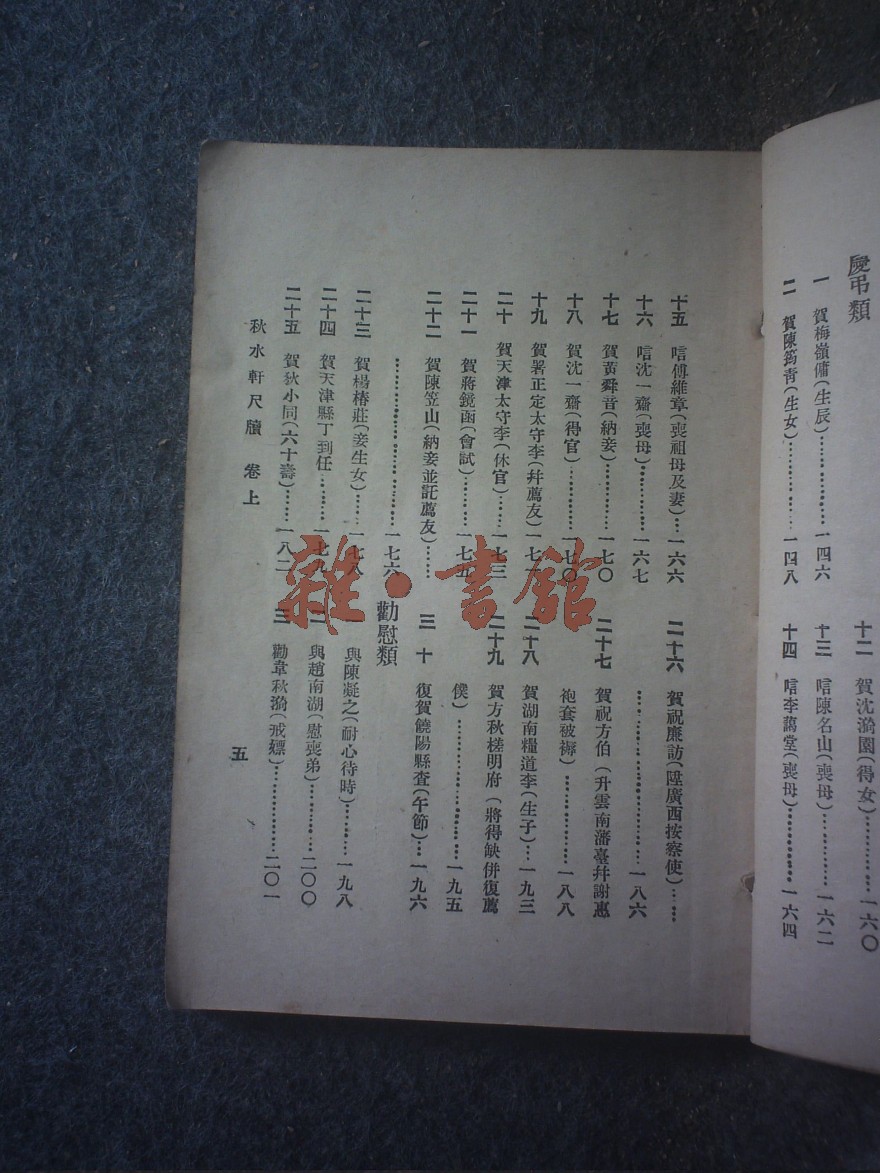 慶弔類
一 賀梅嶺傭(生辰)…………一四六
二 賀陳筠青(生女)…………一四八
十二 賀沈漪園(得女)…………一六〇
十三 唁陳名山(喪母)…………一六二
十四 唁李藹堂(喪母)…………一六四
十五 唁傅維章(喪祖母及妻)…一六六
十六 唁沈一齋(喪母)…………一六七
十七 賀黃舜音(納妾)…………一七〇
十八 賀沈一齋(得官)…………一七〇
十九 賀署正定太守李(幷薦友)一七一
二十 賀天津太守李(休官)……一七三
二十一 賀蔣鏡函(會試)………一七五
二十二 賀陳笠山(納妾並託薦友)……
……………………一七六
二十三 賀楊椿莊(妾生女)……一七八
二十四 賀天津縣丁到任………一七九
二十五 賀狄小同(六十壽)……一八二
二十六 賀祝廉訪(陞廣西按察使)……
……………………一八六
二十七 賀祝方伯(升雲南藩臺幷謝惠
袍套被褥)……………一八八
二十八 賀湖南糧道李(生子)…一九三
二十九 賀方秋槎明府(將得缺併復薦
僕)……………………一九五
三十 復賀饒陽縣查(午節)…一九六
勸慰類
一 與陳凝之(耐心待時)………一九八
二 與趙南湖(慰喪弟)…………二〇〇
三 勸韋秋漪(戒嫖)……………二〇一
秋水軒尺牘 卷上
五
雜·書館